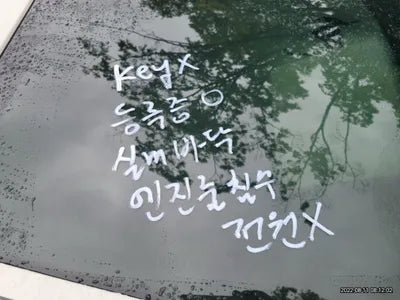 Key X
등록증 O
실내바닥
엔진룸침수
전원X
2022-08-11 08:12:02